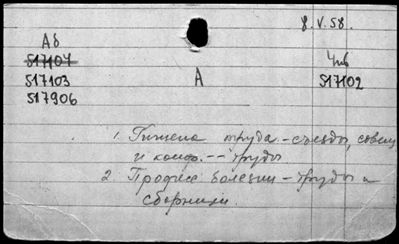 8.V.58.
Аб
517107
517103
517906
А
Чнв
517102
1. Гигиена труда. - съезды, совещ
и конф. -- труды
2. Професс болезни - труды и
сборники.